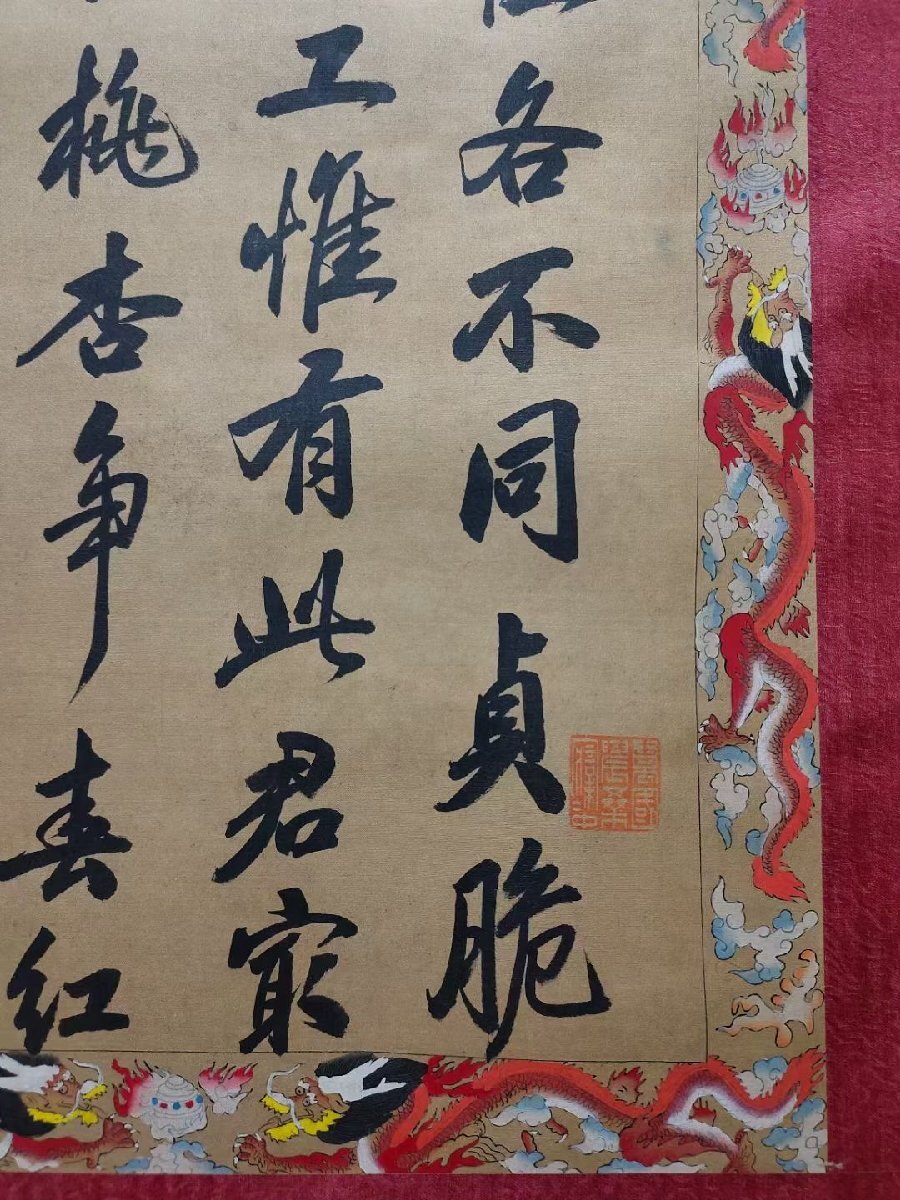 各不同貞脆
工惟有此君最
桃杏争春红